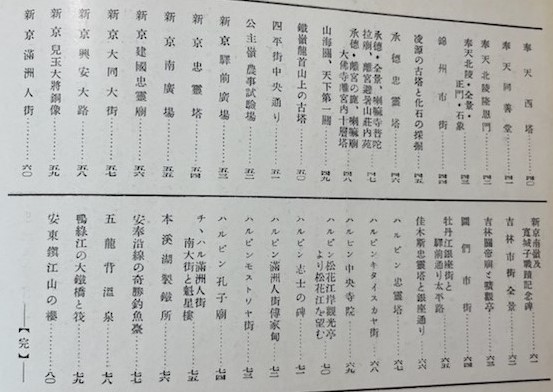 奉天西塔……四〇
奉天同善堂……四一
奉天北陵隆恩門……四二
奉天北陵・全景・
正門・石象……四三
錦州市街……四四
凌源の古塔と化石の採掘……四五
承德忠靈塔……四六
承德・全景、喇嘛寺普陀
拉廟、離宮避暑山莊内苑……四七
承德・離宮の鹿、喇嘛廟
大佛寺離宮内十層塔……四八
山海關、天下第一關……四九
鐵嶺龍首山上の古塔……五〇
四平街中央通り……五一
公主嶺農事試驗場……五二
新京驛前廣場……五三
新京忠靈塔……五四
新京南廣場……五五
新京建國忠靈廟……五六
新京大同大街……五七
新京興安大路……五八
新京兒玉大將銅像……五九
新京滿洲人街……六〇
新京南嶺及
寬城子戰蹟記念碑……六一
吉林市街全景……六二
吉林關帝廟と觀亭……六三
圖們市街……六四
牡丹江銀座街と
驛前通り太平路……六五
佳木斯忠靈塔と銀座通り……六六
ハルピン忠靈塔……六七
ハルピンキタイスカヤ街……六八
ハルピン中央寺院……六九
ハルピン松花江岸觀光亭
より松花江を望む……七〇
ハルピン志士の碑……七一
ハルピン滿洲人街傅家甸……七二
ハルピンモストワヤ街……七三
ハルピン孔子廟……七四
チヽハル滿洲人街
南大街と魁星樓……七五
本溪湖製鐵所……七六
安奉沿線の奇勝釣魚臺……七七
五龍背溫泉……七八
鴨綠江の大鐵橋と筏……七九
安東鎭江山の櫻……八〇
【完】